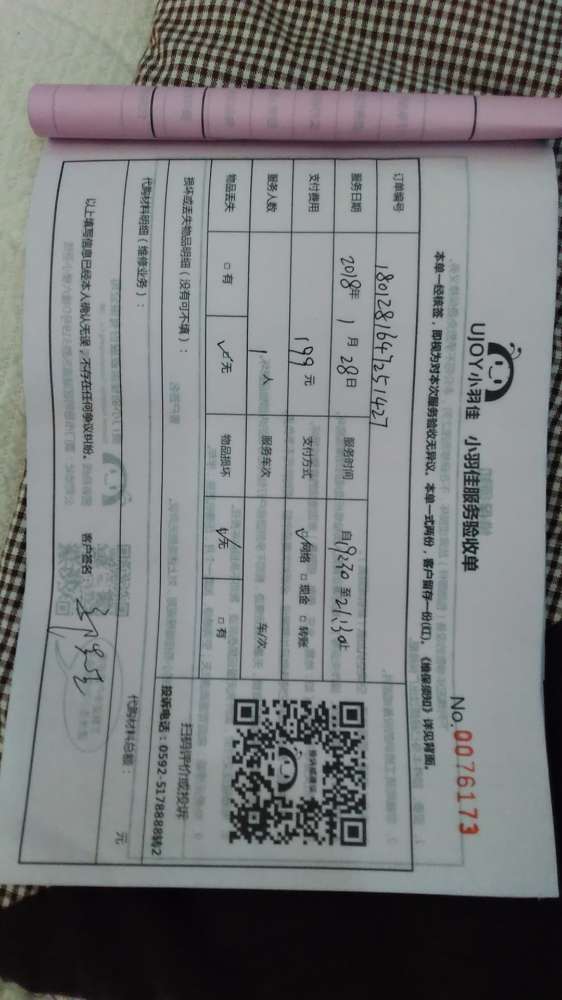 UJOY小羽佳 小羽佳服务验收单
No.0076173
本单一经核签，即视为对本次服务验收无异议。本单一式两份，客户留存一份(红)。《维保须知》详见背面。
订单编号 1801281647251427
服务日期 2018年 1 月 28 日 服务时间 自 19:30 至 21:30
支付费用 199 元 支付方式 ☑网络 □现金 □转账
服务人数 1 人 服务车次 车/次
物品丢失 □有 ☑无 物品损坏 ☑无 □有
损坏或丢失物品明细（没有可不填）：
扫码评价或投诉
投诉电话：0592-5178888转2
代购材料明细（维修业务）：
代购材料总额： 元
以上填写信息已经本人确认无误，不存在任何争议纠纷。
客户签名：